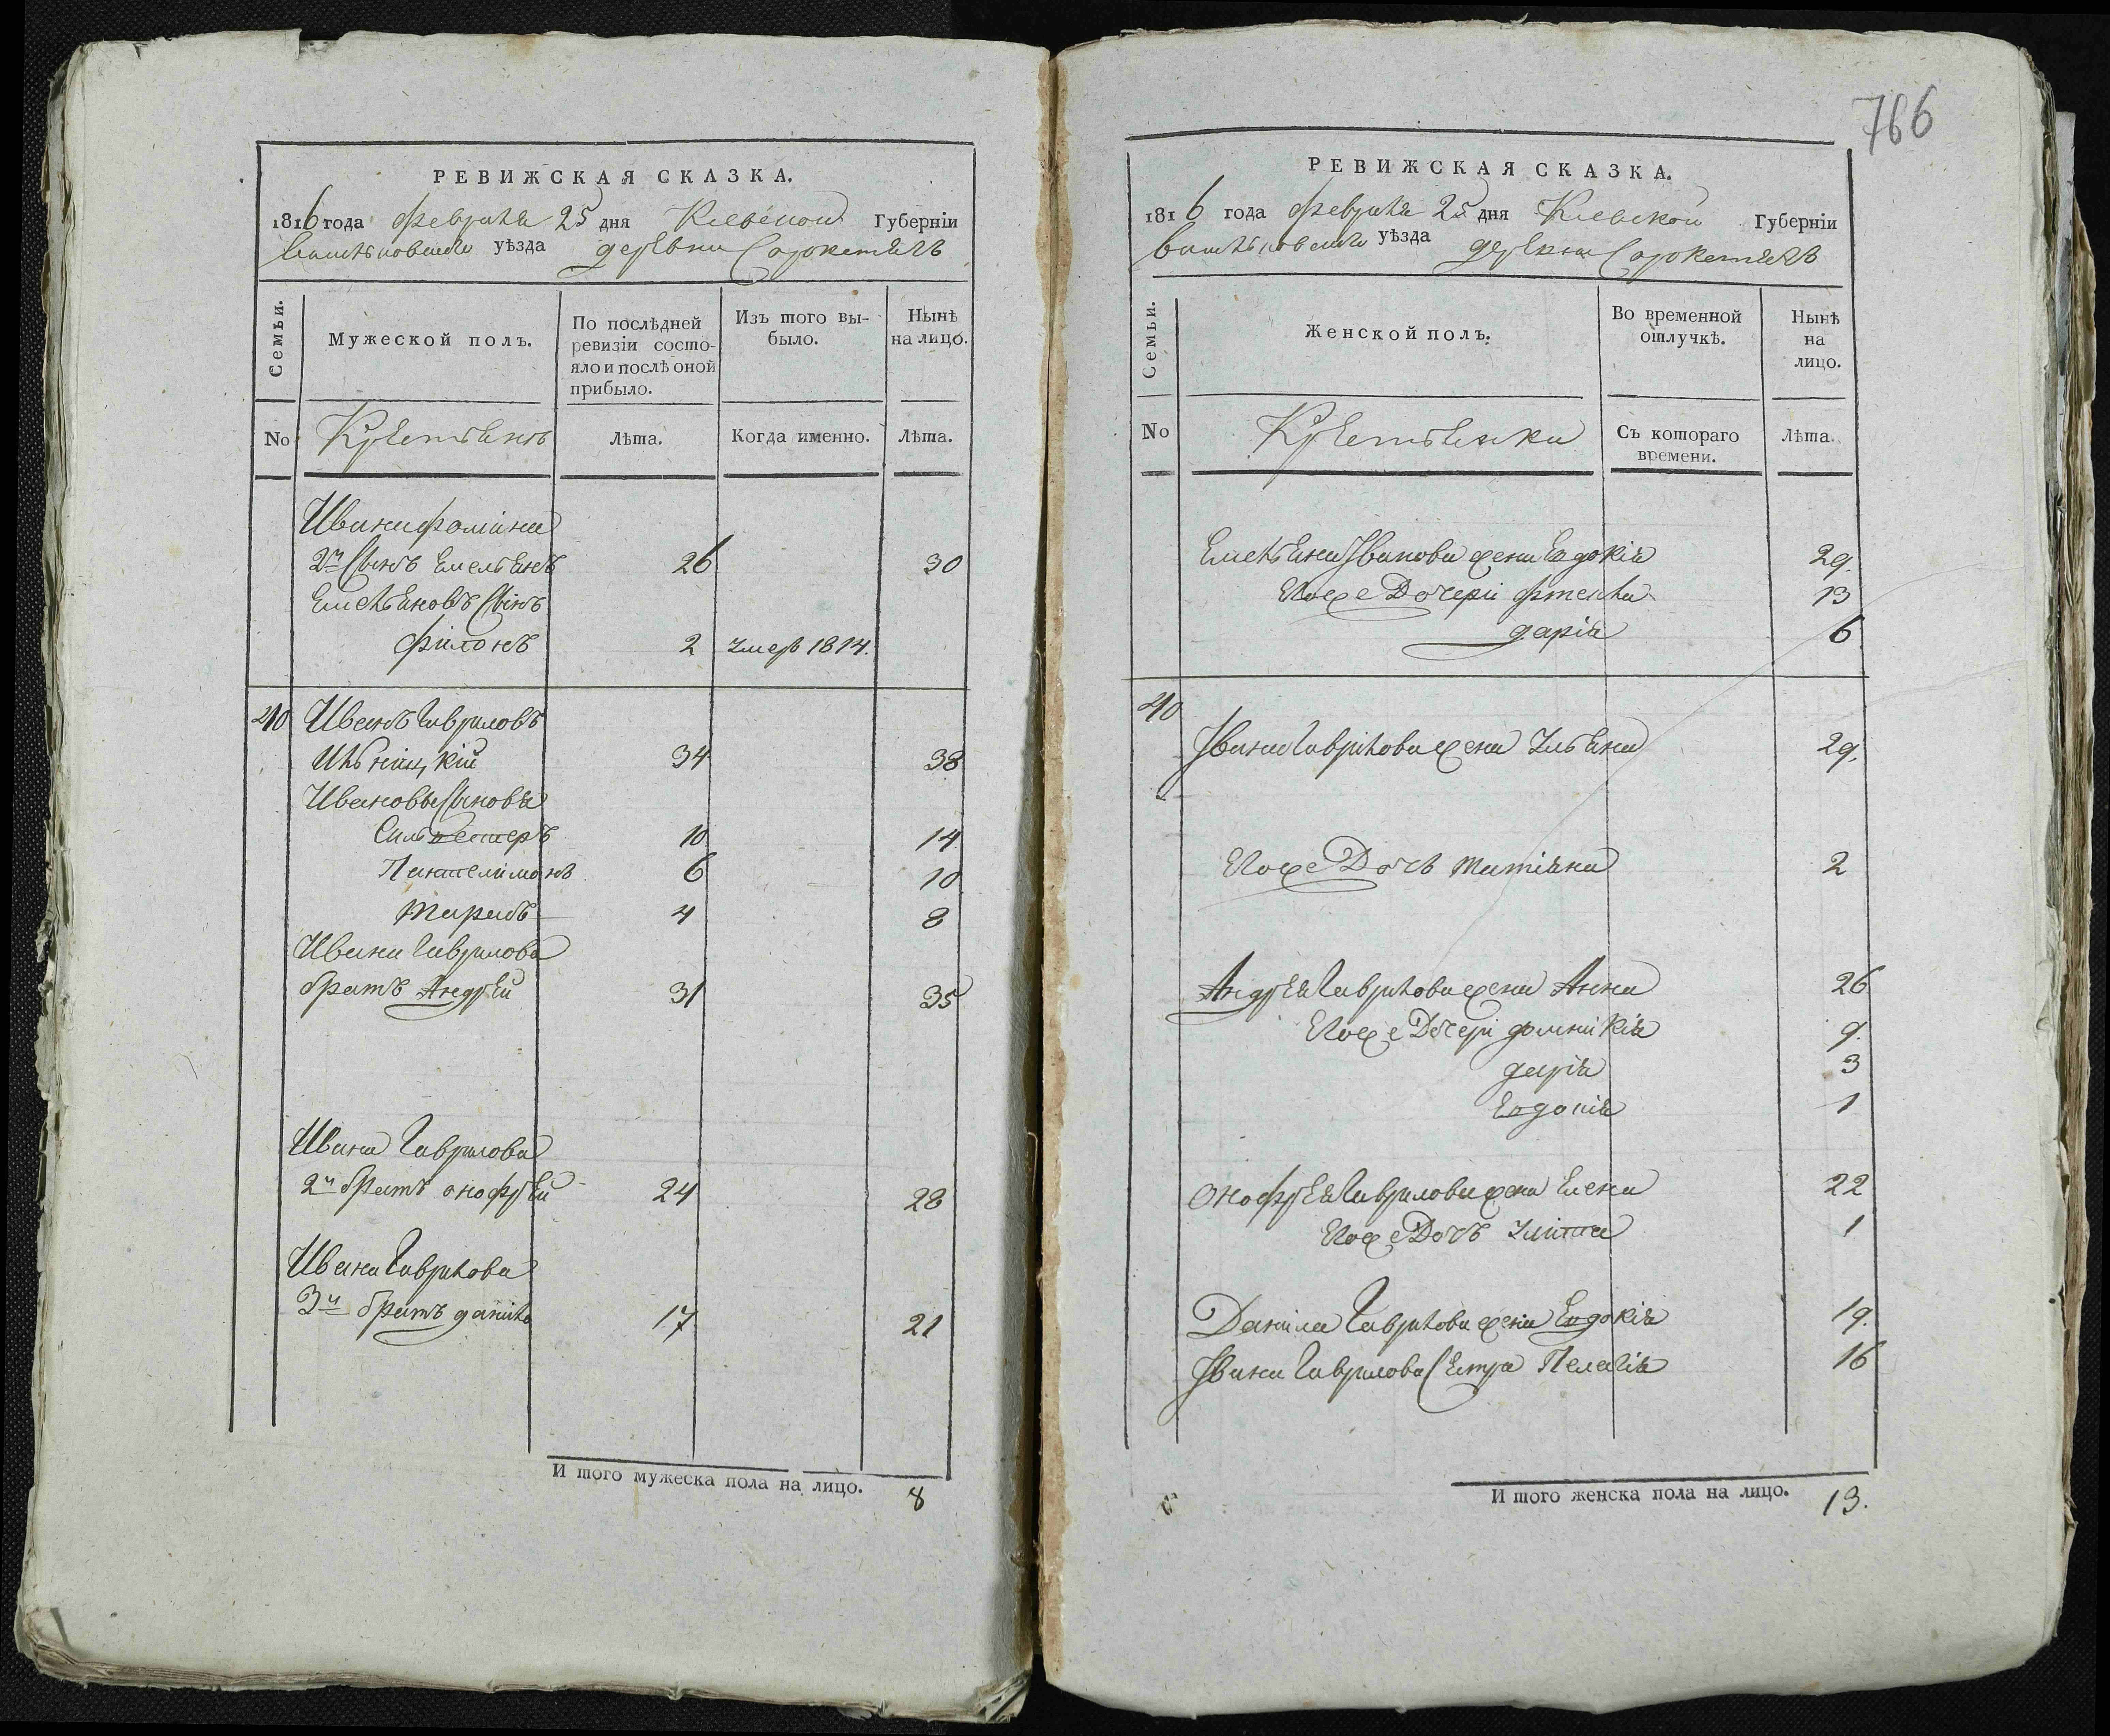 РЕВИЖСКАЯ СКАЗКА.
1816 года февраля 25 дня Киевской Губерніи
Васильковского уѣзда деревни Сорокотягъ
Семьи.
Мужеской полъ.
По послѣдней ревизіи состояло и послѣ оной прибыло.
Изъ того выбыло.
Нынѣ на лицо.
No
Крестьянъ
Лѣта.
Когда именно.
Лѣта.
Ивана Фоміна
2й Сынъ Емельянъ 26 30
Емельяновъ Сынъ
Филонъ 2 умеръ 1814.
40 Иванъ Гавриловъ
Ильніцкій 34 38
Ивановы Сыновья
Сильвестеръ 10 14
Пантелимонъ 6 10
Тарасъ 4 8
Ивана Гаврилова
братъ Андрей 31 35
Ивана Гаврилова
2й братъ онофрей 24 28
Ивана Гаврилова
3й братъ данило 17 21
И того мужеска пола на лицо. 8
766
РЕВИЖСКАЯ СКАЗКА.
1816 года февраля 25 дня Киевской Губерніи
Васильковского уѣзда деревни Сорокотягъ
Семьи.
Женской полъ.
Во временной отлучкѣ.
Нынѣ на лицо.
No
Крестьянки
Съ котораго времени.
Лѣта.
Емельяна Іванова жена Евдокія 29.
Егоже Дочери Фтекла 13
дарія 6
40
Івана Гаврилова жена Ульяна 29.
Егоже Дочь татіяна 2
Андрея Гаврилова жена Анна 26
Егоже Дочери домнікія 9.
дарія 3
Евдокія 1
Онофрея Гаврилова жена Елена 22
Егоже Дочъ Улита 1
Данила Гаврилова жена Евдокія 19.
Івана Гаврилова Сестра Пелагія 16
И того женска пола на лицо. 13.